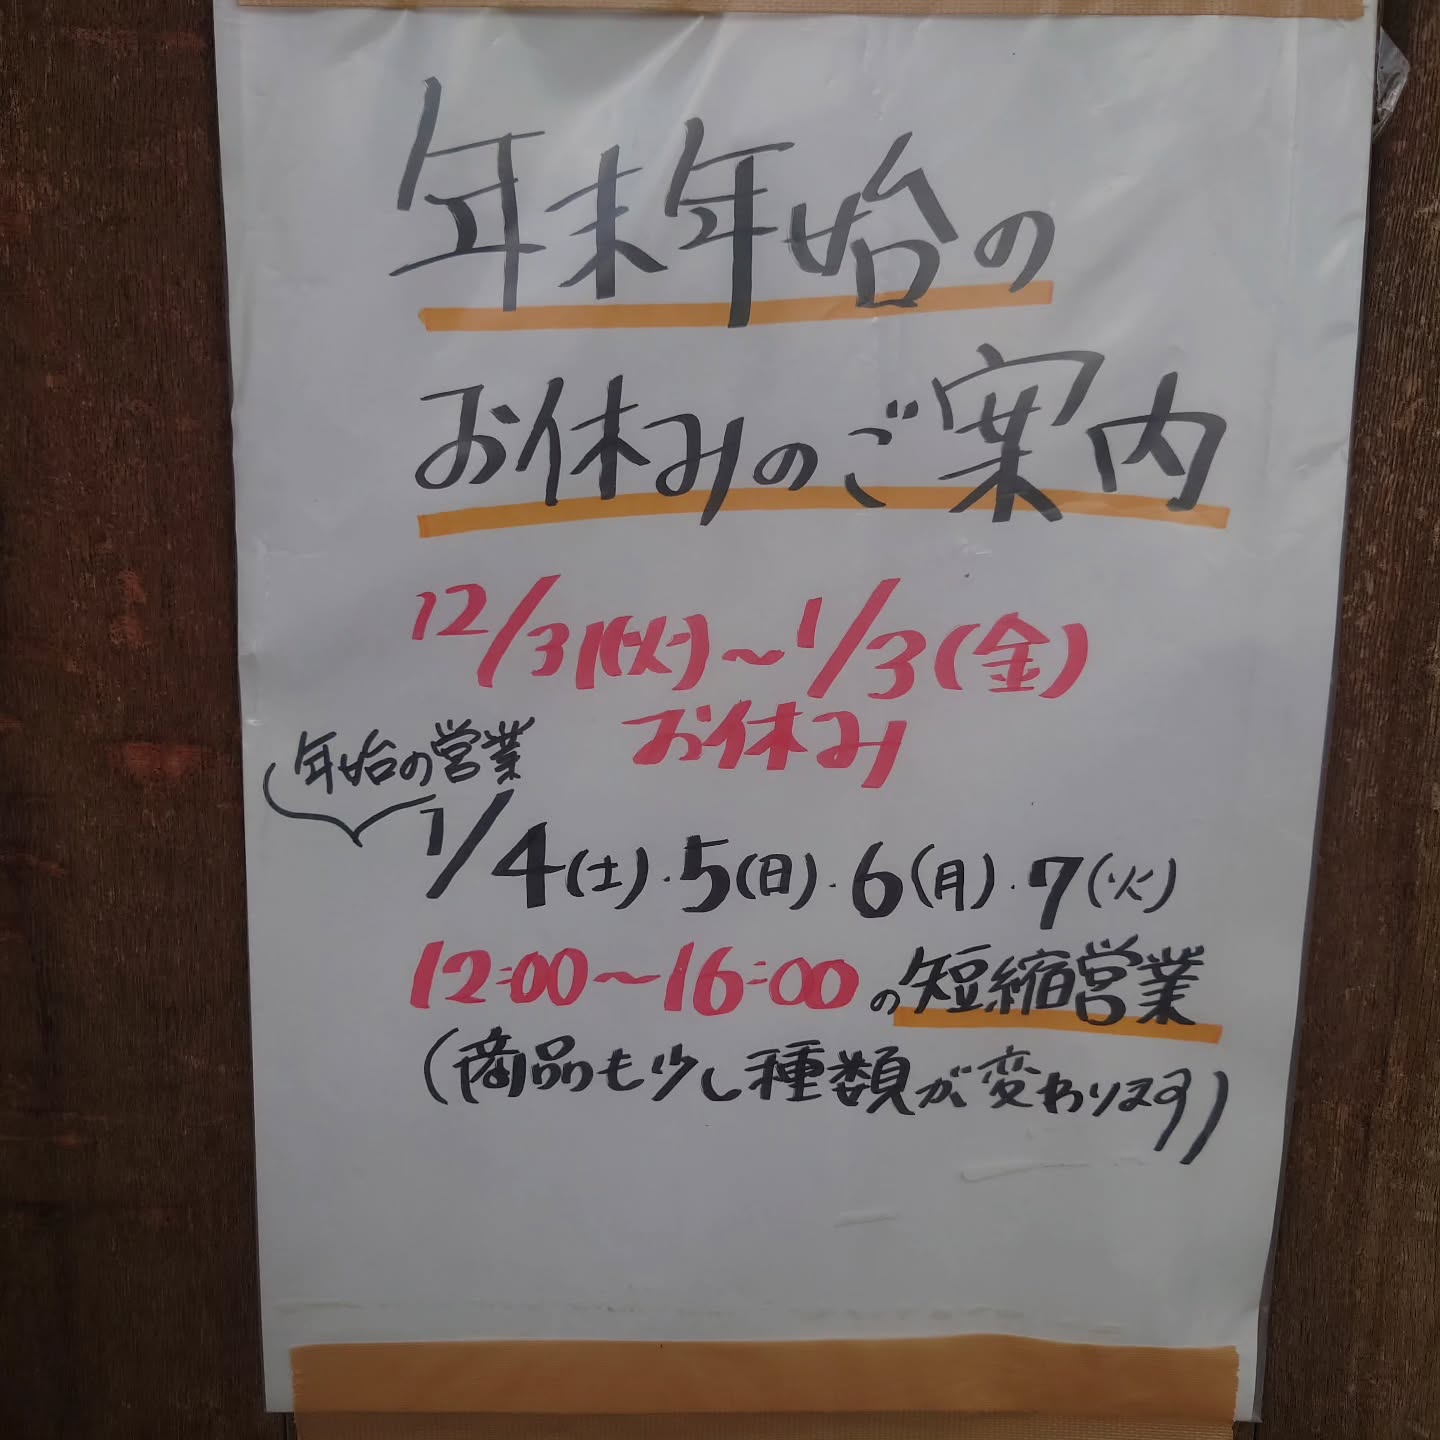 年末年始の
お休みのご案内
12/31(火)〜1/3(金)
お休み
年始の営業
1/4(土)・5(日)・6(月)・7(火)
12:00〜16:00の短縮営業
(商品も少し種類が変わります)